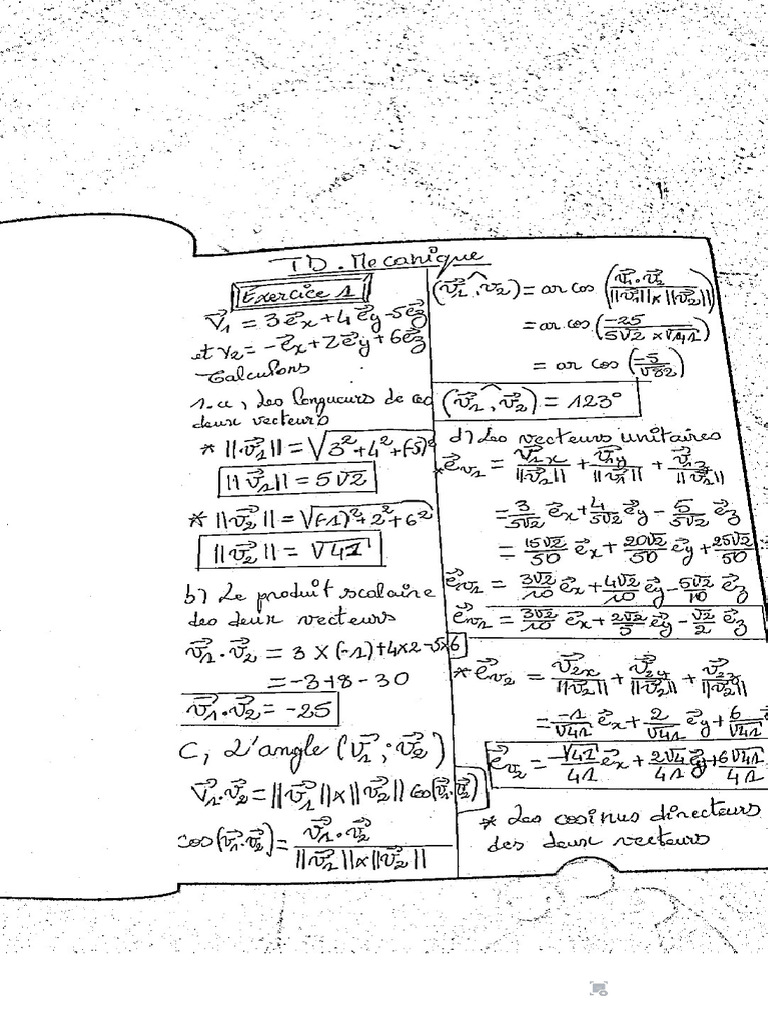 TD. Mecanique
Exercice 1
V⃗1 = 3e⃗x+4e⃗y-5e⃗z
et v2 = -e⃗x+2e⃗y+6e⃗z
Calculons
1.a, Les longueurs de ces
deux vecteurs
* ||v⃗1|| = √(3²+4²+(-5)²)
||v⃗1|| = 5√2
* ||v⃗2|| = √((-1)²+2²+6²)
||v⃗2|| = √41
b) Le produit scolaire
des deux vecteurs
v⃗1 · v⃗2 = 3 × (-1)+4×2-5×6
= -3+8-30
v⃗1·v⃗2 = -25
C, L'angle (v⃗1 ; v⃗2)
V⃗1·v⃗2 = ||v⃗1|| × ||v⃗2|| cos(v⃗1·v⃗2)
cos(v⃗1·v⃗2) = v⃗1·v⃗2 / ||v⃗1|| × ||v⃗2||
(v⃗1, v⃗2) = ar cos (v⃗1·v⃗2 / ||v⃗1|| × ||v⃗2||)
= ar cos (-25 / 5√2 × √41)
= ar cos (-5 / √82)
(v⃗1, v⃗2) = 123°
d) Les vecteurs unitaires
* e⃗v1 = v⃗1x/||v⃗1|| + v⃗1y/||v⃗1|| + v⃗1z/||v⃗1||
= 3/5√2 e⃗x + 4/5√2 e⃗y - 5/5√2 e⃗z
= 15√2/50 e⃗x + 20√2/50 e⃗y + 25√2/50
e⃗v1 = 3√2/10 e⃗x + 4√2/10 e⃗y - 5√2/10 e⃗z
e⃗v1 = 3√2/10 e⃗x + 2√2/5 e⃗y - √2/2 e⃗z
* e⃗v2 = v⃗2x/||v⃗2|| + v⃗2y/||v⃗2|| + v⃗2z/||v⃗2||
= -1/√41 e⃗x + 2/√41 e⃗y + 6/√41
e⃗v2 = -√41/41 e⃗x + 2√4/41 e⃗y + 6√41/41
* Les cosinus directeurs
des deux vecteurs